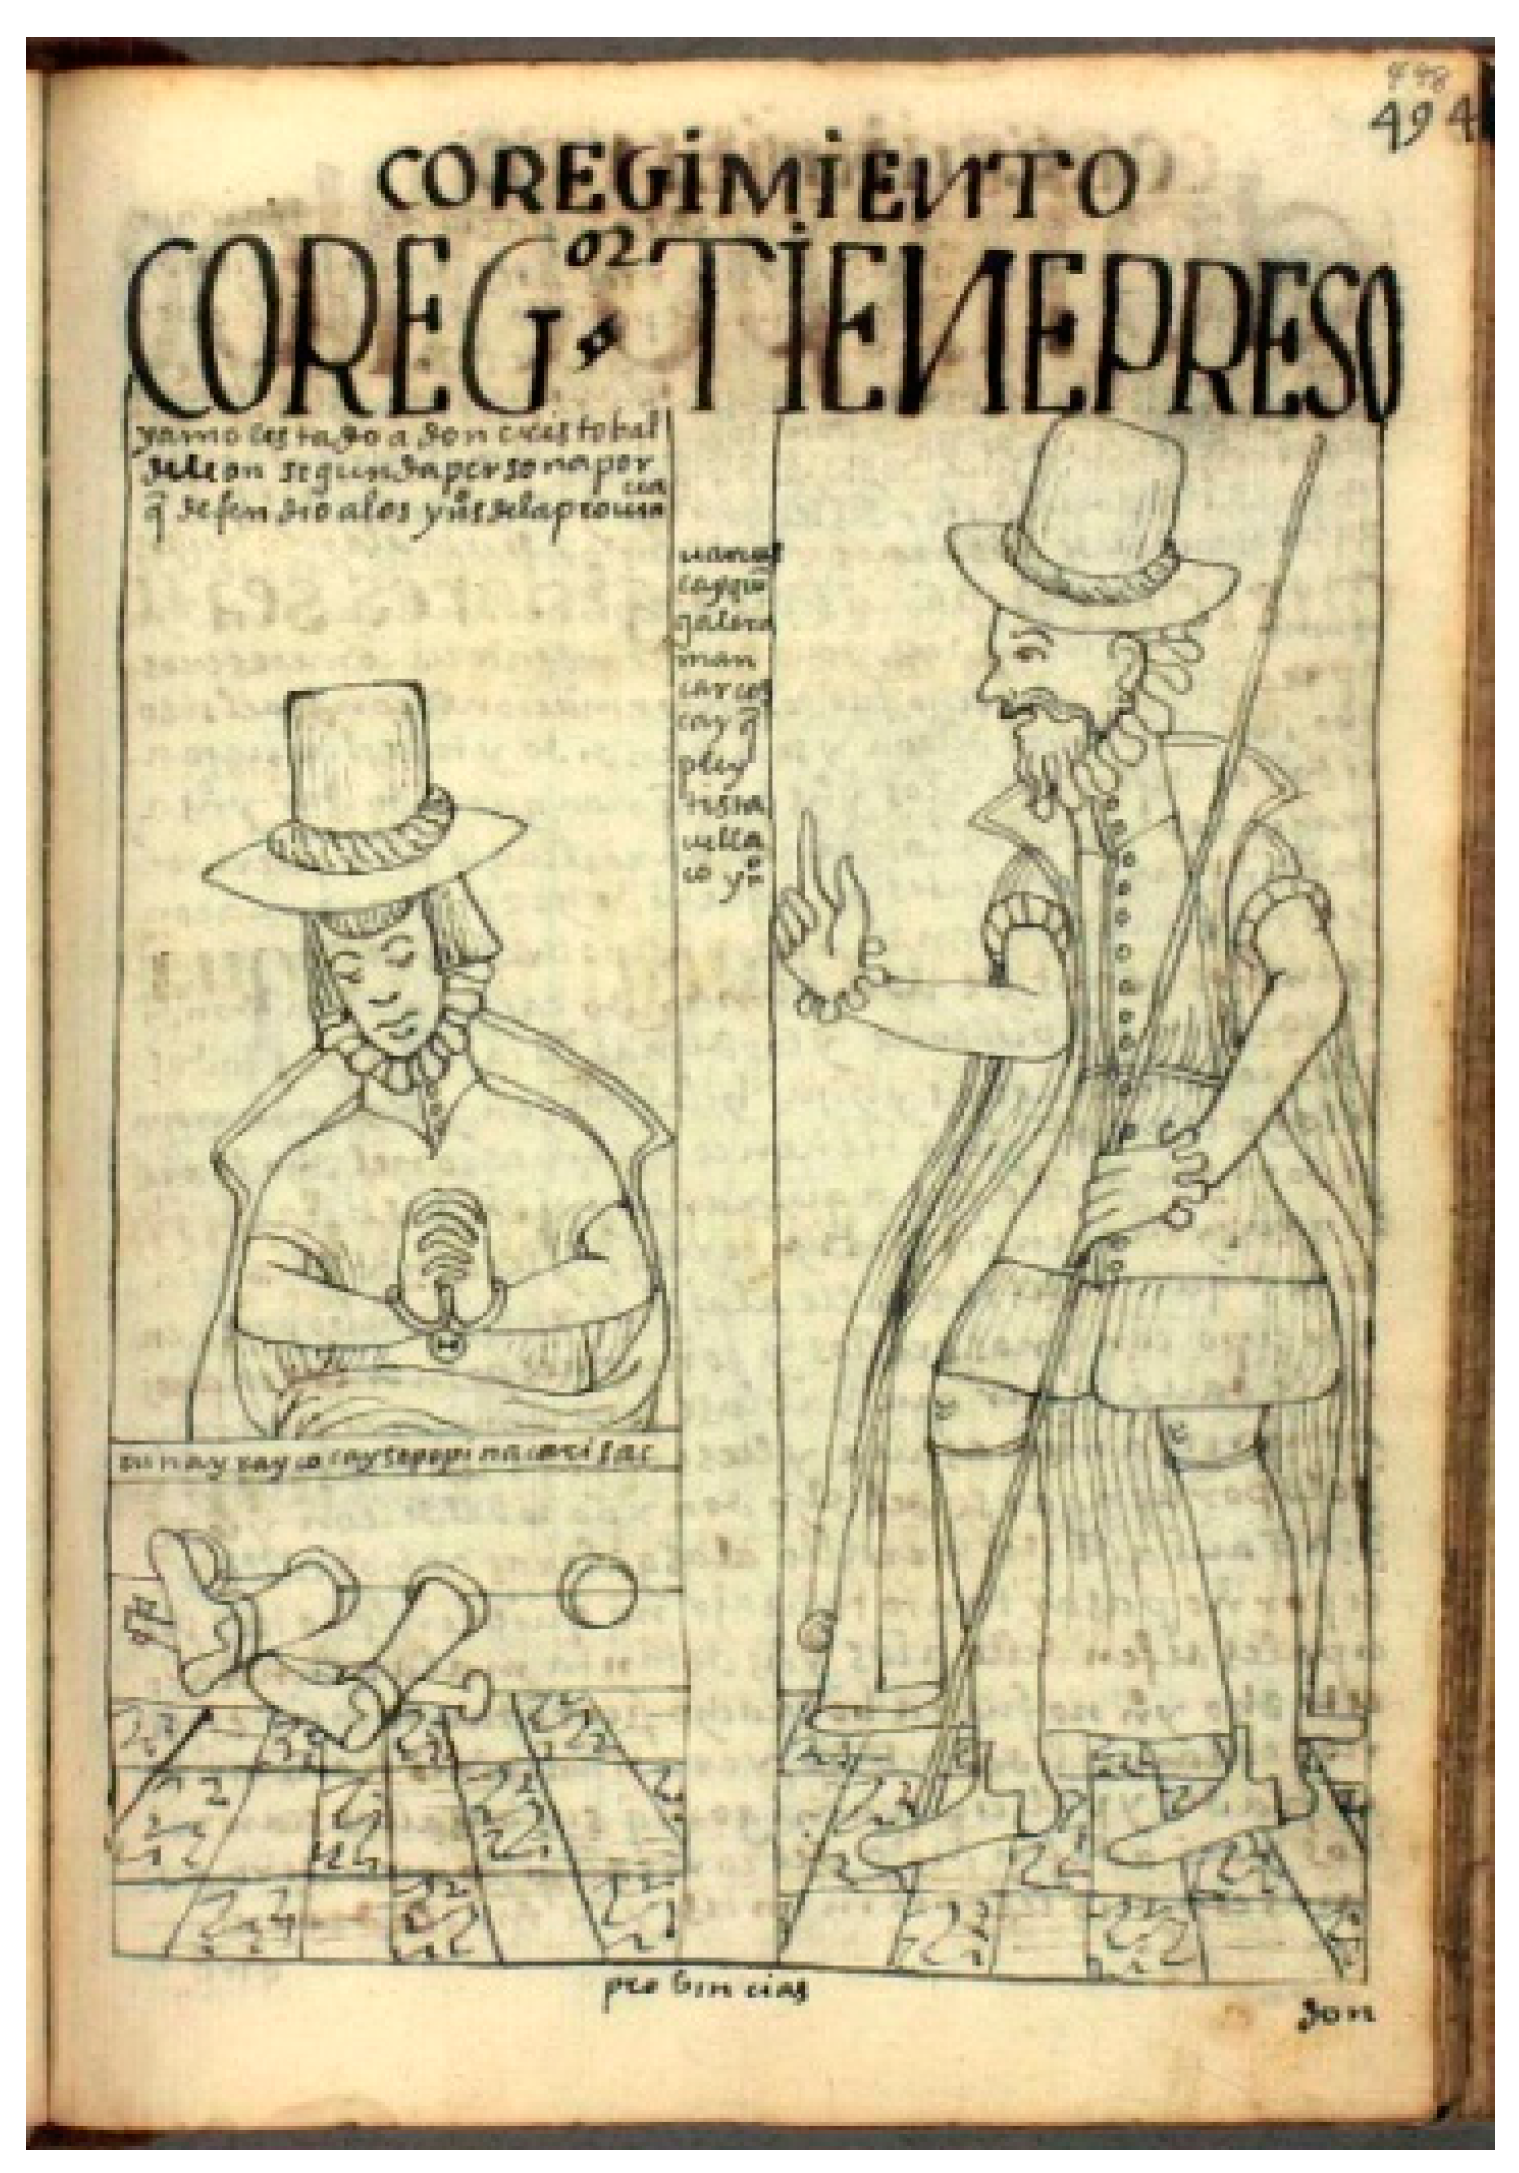 498
494
COREGIMIENTO
COREG.OR TIENE PRESO
y a molestado a don cristobal
de leon segunda persona por
q̃ defendio a los yn̄s de la prouin
cia
uanas
cayqui
galera
man
carcos
cay q̃
pley
tista
uella
co yn̄o
munay uayco cay sepopi nacarisac
probincias
don